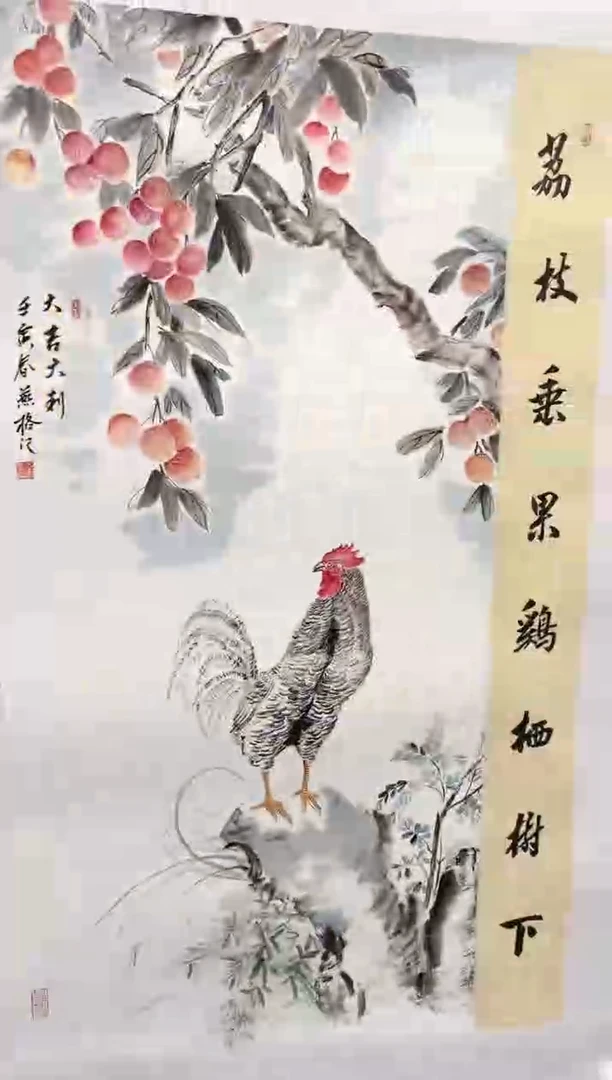 荔枝垂果鷄栖樹下
大吉大利
壬寅春燕格记